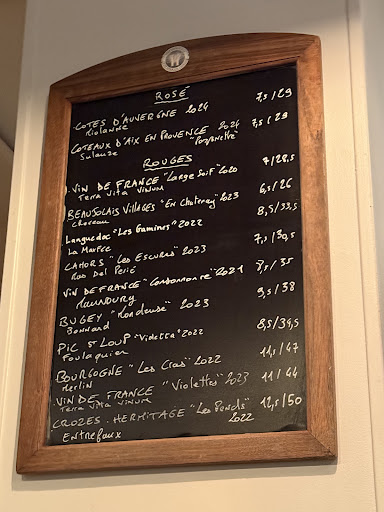 ROSÉ
COTES D'AUVERGNE 2024 7,5/29
Riolanne
COTEAUX D'AIX EN PROVENCE 2024 7,5/29
Sulauze "Pomponette"
ROUGES
VIN DE FRANCE "Large Soif" 2020 7/28,5
Terra Vita Vinum
BEAUJOLAIS VILLAGES "En Chatenay" 2023 6,5/26
Chereau
Languedoc "Les Gamines" 2022 8,5/33,5
La Marfée
CAHORS "Les Escures" 2023 7,5/30,5
Mas Del Périé
VIN DE FRANCE 2021 8,5/35
MAUNOURY
BUGEY "Mondeuse" 2023 9,5/38
Bonnard
PIC ST LOUP "Videtta" 2022 8,5/34,5
Foulaquier
BOURGOGNE "Les Cras" 2022 11,5/47
Merlin
VIN DE FRANCE "Violettes" 2023 11/44
Terra Vita Vinum
CROZES-HERMITAGE "Les Pends" 12,5/50
2022
Entrefaux